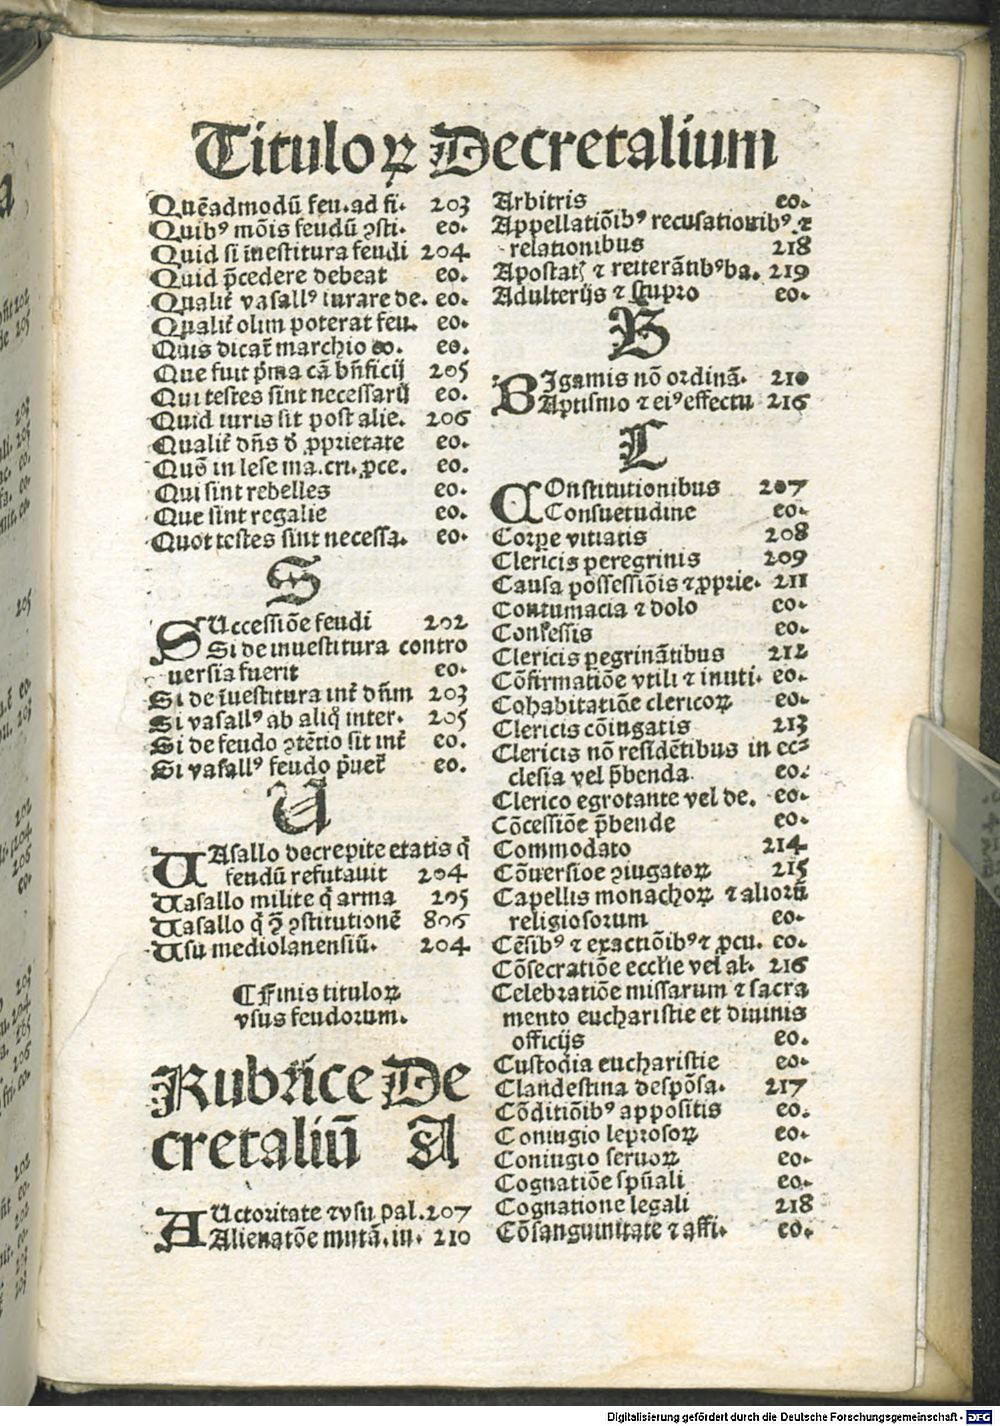 Tituloꝝ Decretalium
Quēadmodū feu. ad fi. 203
Quibꝰ mōis feudū ꝯsti. eo.
Quid si inestitura feudi 204
Quid p̄cedere debeat eo.
Qualit̄ vasallꝰ iurare de. eo.
Qualit̄ olim poterat feu. eo.
Quis dicat̄ marchio eo. eo.
Que fuit p̄ma cā bn̄ficij 205
Qui testes sint necessarij eo.
Quid iuris sit post alie. 206
Qualit̄ dn̄s ꝺ̄ ꝓprietate eo.
Quō in lese ma. cri. ꝓce. eo.
Qui sint rebelles eo.
Que sint regalie eo.
Quot testes sint necessa. eo.
S
SUccessiōe feudi 202
Si de inuestitura contro
uersia fuerit eo.
Si de īuestitura int̄ dn̄m 203
Si vasallꝰ ab aliq̄ inter. 205
Si de feudo ꝯtētio sit int̄ eo.
Si vasallꝰ feudo p̄uet̄ eo.
U
UAsallo decrepite etatis q̄
feudū refutauit 204
Uasallo milite q̄ arma 205
Uasallo q̄ ꝯ̄ ꝯstitutionē 806
Usu mediolanensiū. 204
¶ Finis tituloꝝ
vsus feudorum.
Rubrice De
cretaliū A
AUctoritate ⁊ vsu pal. 207
Alienatōe mutā. iu. 210
Arbitris eo.
Appellatiōibꝰ recusationibꝰ ⁊
relationibus 218
Apostat ⁊ reiterātibꝰ ba. 219
Adulterijs ⁊ stupro eo.
B
BIgamis nō ordinā. 210
Baptismo ⁊ eiꝰ effectu 216
C
COnstitutionibus 207
Consuetudine eo.
Corpe vitiatis 208
Clericis peregrinis 209
Causa possessiōis ⁊ ꝓprie. 211
Contumacia ⁊ dolo eo.
Confessis eo.
Clericis pegrinātibus 212
Cōfirmatiōe vtili ⁊ inuti. eo.
Cohabitatiōe clericoꝝ eo.
Clericis cōiugatis 213
Clericis nō residētibus in ec⸗
clesia vel p̄benda eo.
Clerico egrotante vel de. eo.
Cōcessiōe p̄bende eo.
Commodato 214
Cōuersioe ꝯiugatoꝝ 215
Capellis monachoꝝ ⁊ aliorū
religiosorum eo.
Cēsibꝰ ⁊ exactiōibꝰ ⁊ ꝓcu. eo.
Cōsecratiōe ecclie vel al. 216
Celebratiōe missarum ⁊ sacra
mento eucharistie et diuinis
officijs eo.
Custodia eucharistie eo.
Clandestina despōsa. 217
Cōditiōibꝰ appositis eo.
Coniugio leprosoꝝ eo.
Coniugio seruoꝝ eo.
Cognatiōe spūali eo.
Cognatione legali 218
Cōsanguinitate ⁊ affi. eo.
Digitalisierung gefördert durch die Deutsche Forschungsgemeinschaft - DFG